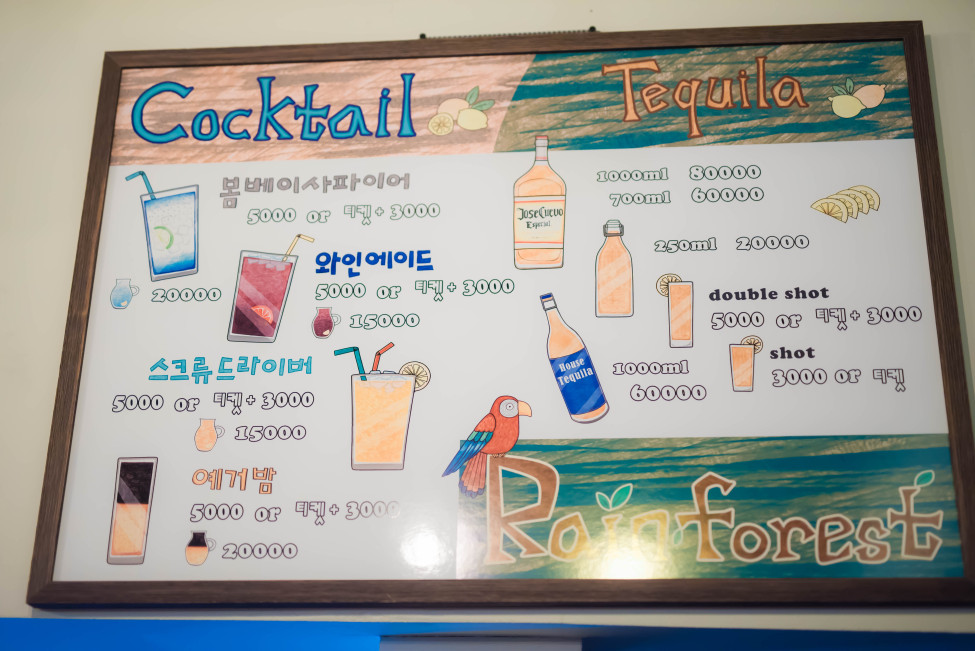 Cocktail
봄베이사파이어
5000 or 티켓+3000
20000
와인에이드
5000 or 티켓+3000
15000
스크류드라이버
5000 or 티켓+3000
15000
예거밤
5000 or 티켓+3000
20000
Tequila
Jose Cuevo
Especial
1000ml 80000
700ml 60000
250ml 20000
double shot
5000 or 티켓+3000
shot
3000 or 티켓
House
Tequila
1000ml
60000
Rainforest